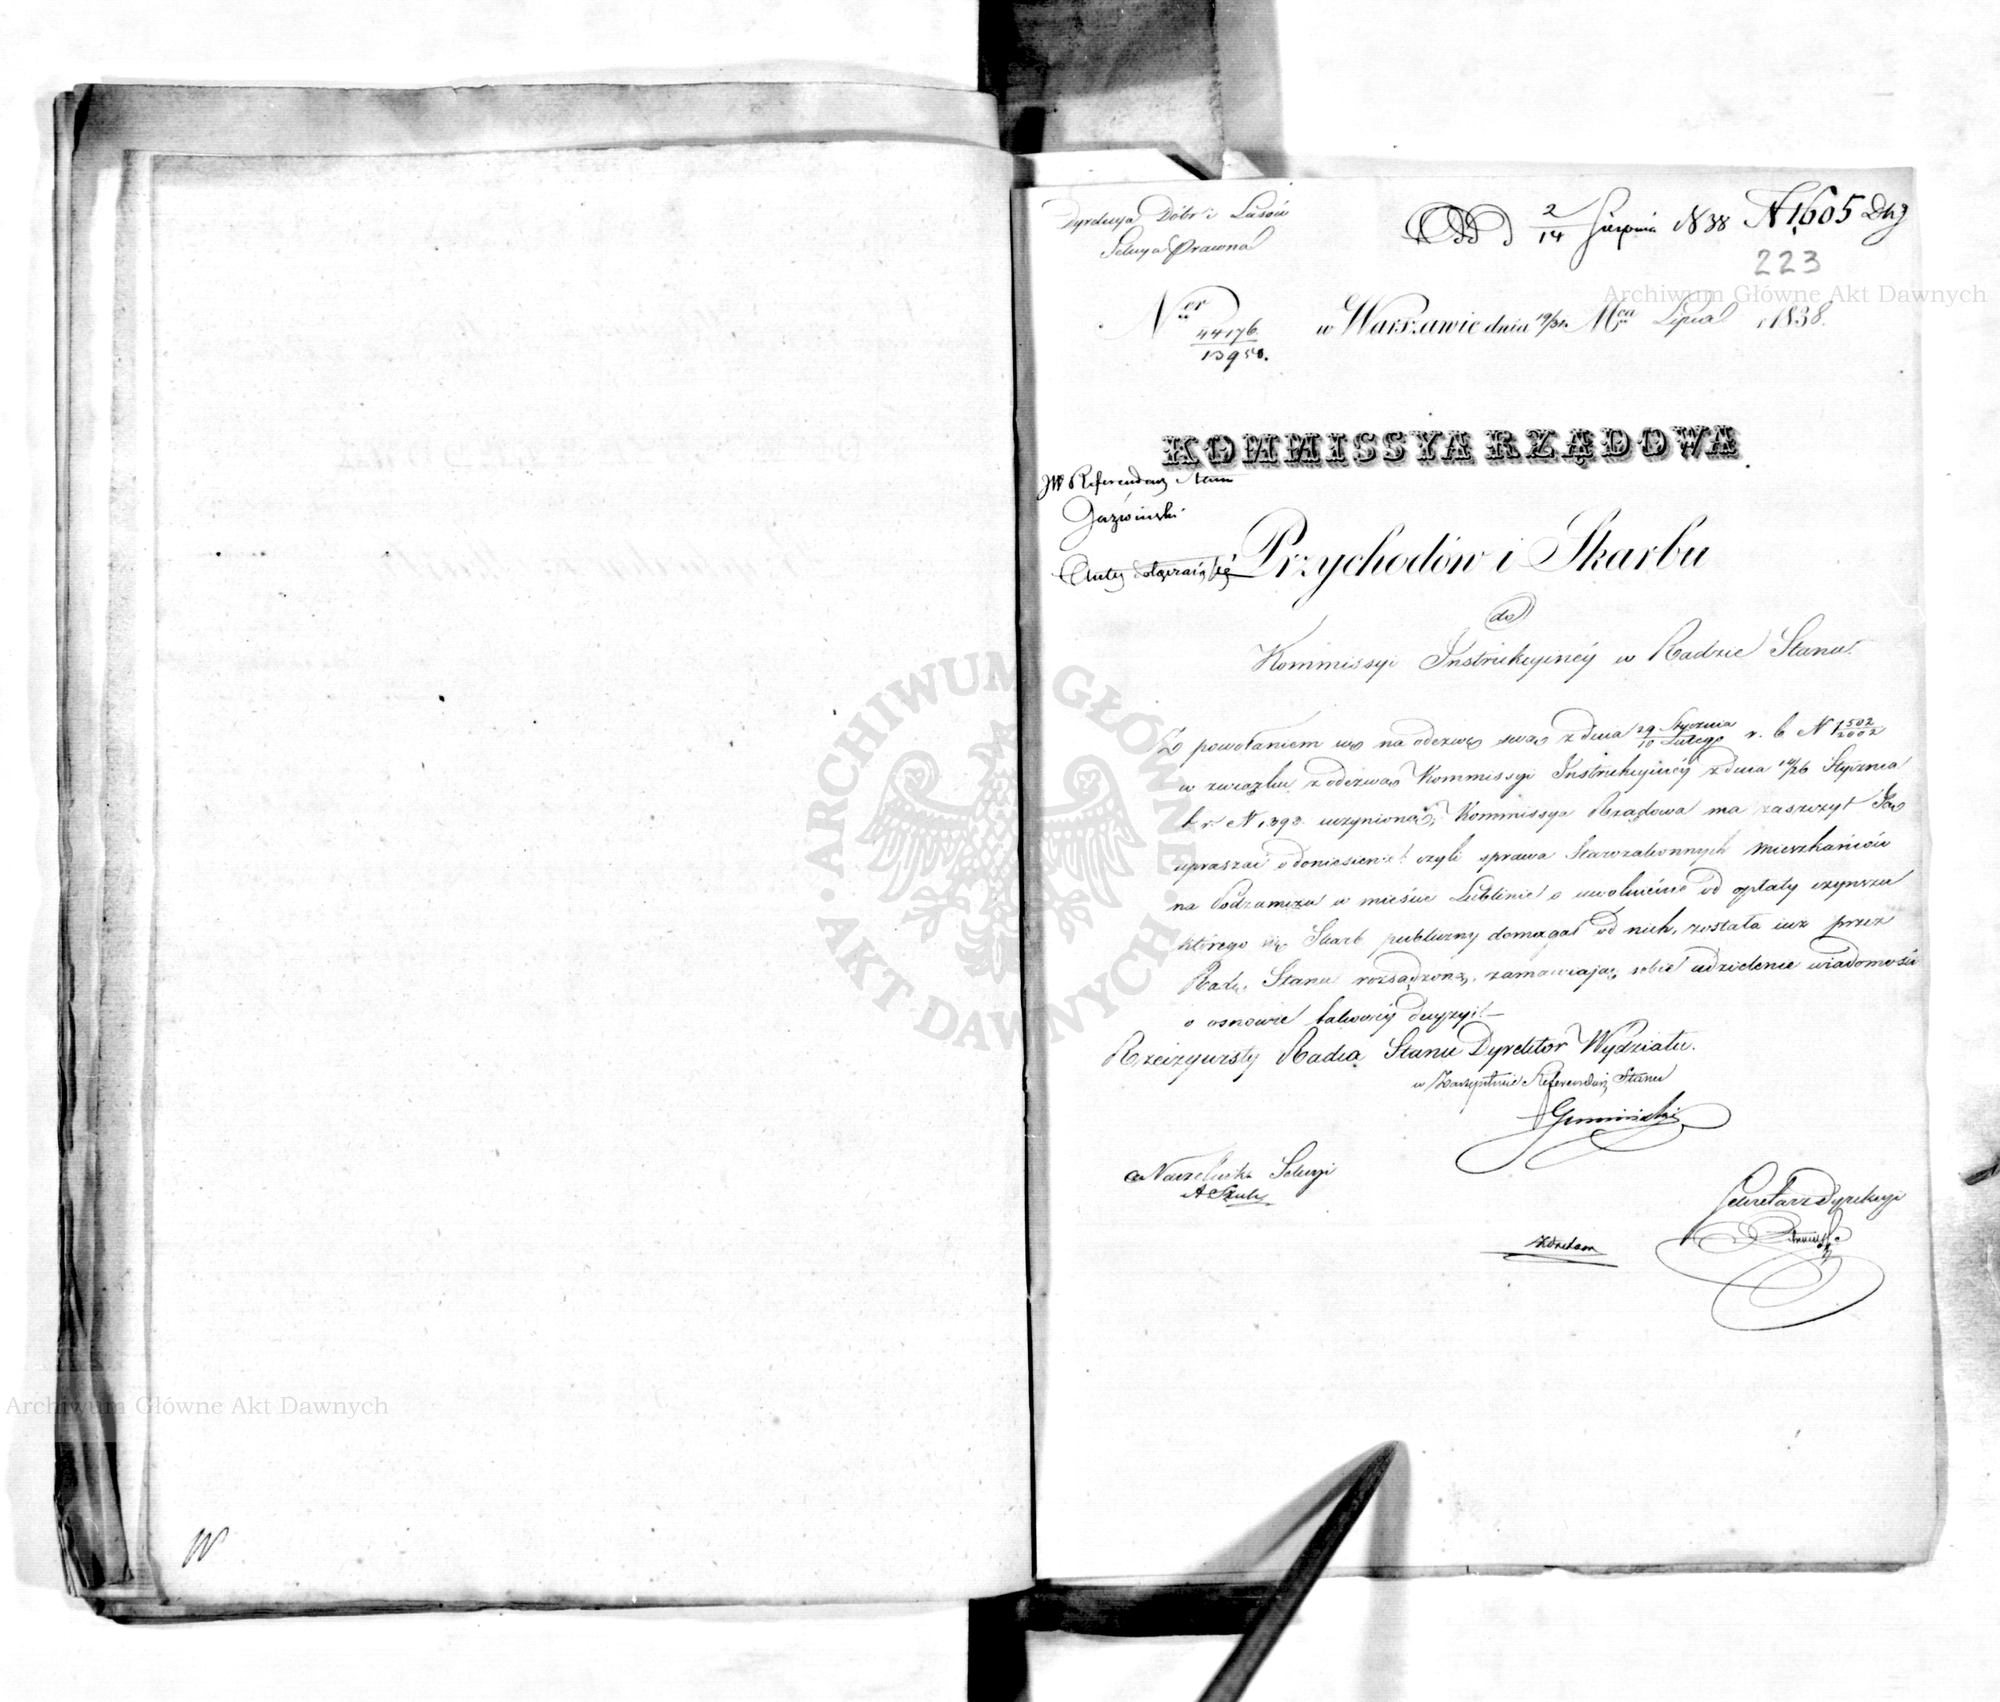 Dyrekcya Dóbr i Lasów
Sekcya Prawna
2/14 Sierpnia 1838 N 1605
223
Archiwum Główne Akt Dawnych
Ner 44176/13950.
w Warszawie dnia 19/31 Mca Lipca 1838.
KOMMISSYA RZĄDOWA
JW Referendarz Stanu
Jaźwiński
Przychodów i Skarbu
do
Kommissyi Instrukcyinéy w Radzie Stanu.
Z powołaniem się na odezwę swą z dnia 29 Stycznia/10 Lutego r. b. N 1502/2002
w związku z odezwą Kommissyi Instrukcyinéy z dnia 14/26 Stycznia
b r. N 1393 uczynioną, Kommissya Rządowa ma zaszczyt Ją
upraszać o doniesienie: czyli sprawa Starozakonnych mieszkańców
na Podzamczu w mieście Lublinie o uwolnienie od opłaty czynszu
którego się Skarb publiczny domagał od nich, została iuż przez
Radę Stanu rozsądzoną, zamawiając sobie udzielenie wiadomości
o osnowie takowéy decyzyi.
Rzeczywisty Radca Stanu Dyrektor Wydziału.
w Zastępstwie Referendarz Stanu
Naczelnik Sekcyi
A Szulc
Sekretarz Dyrekcyi
ARCHIWUM GŁÓWNE AKT DAWNYCH
Archiwum Główne Akt Dawnych